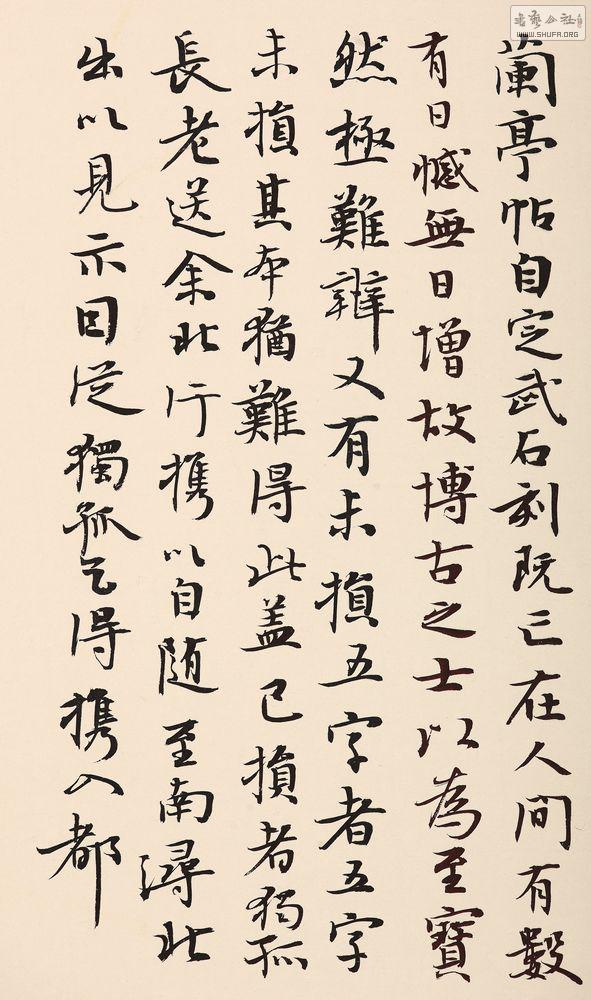 蘭亭帖自定武石刻既亡在人間有數
有日憾無日增故博古之士以為至寶
然極難辨又有未損五字者五字
未損其本猶難得此盖已損者獨孤
長老送余北行携以自随至南潯北
出以見示因從獨孤乞得携入都
書藝公社
WWW.SHUFA.ORG